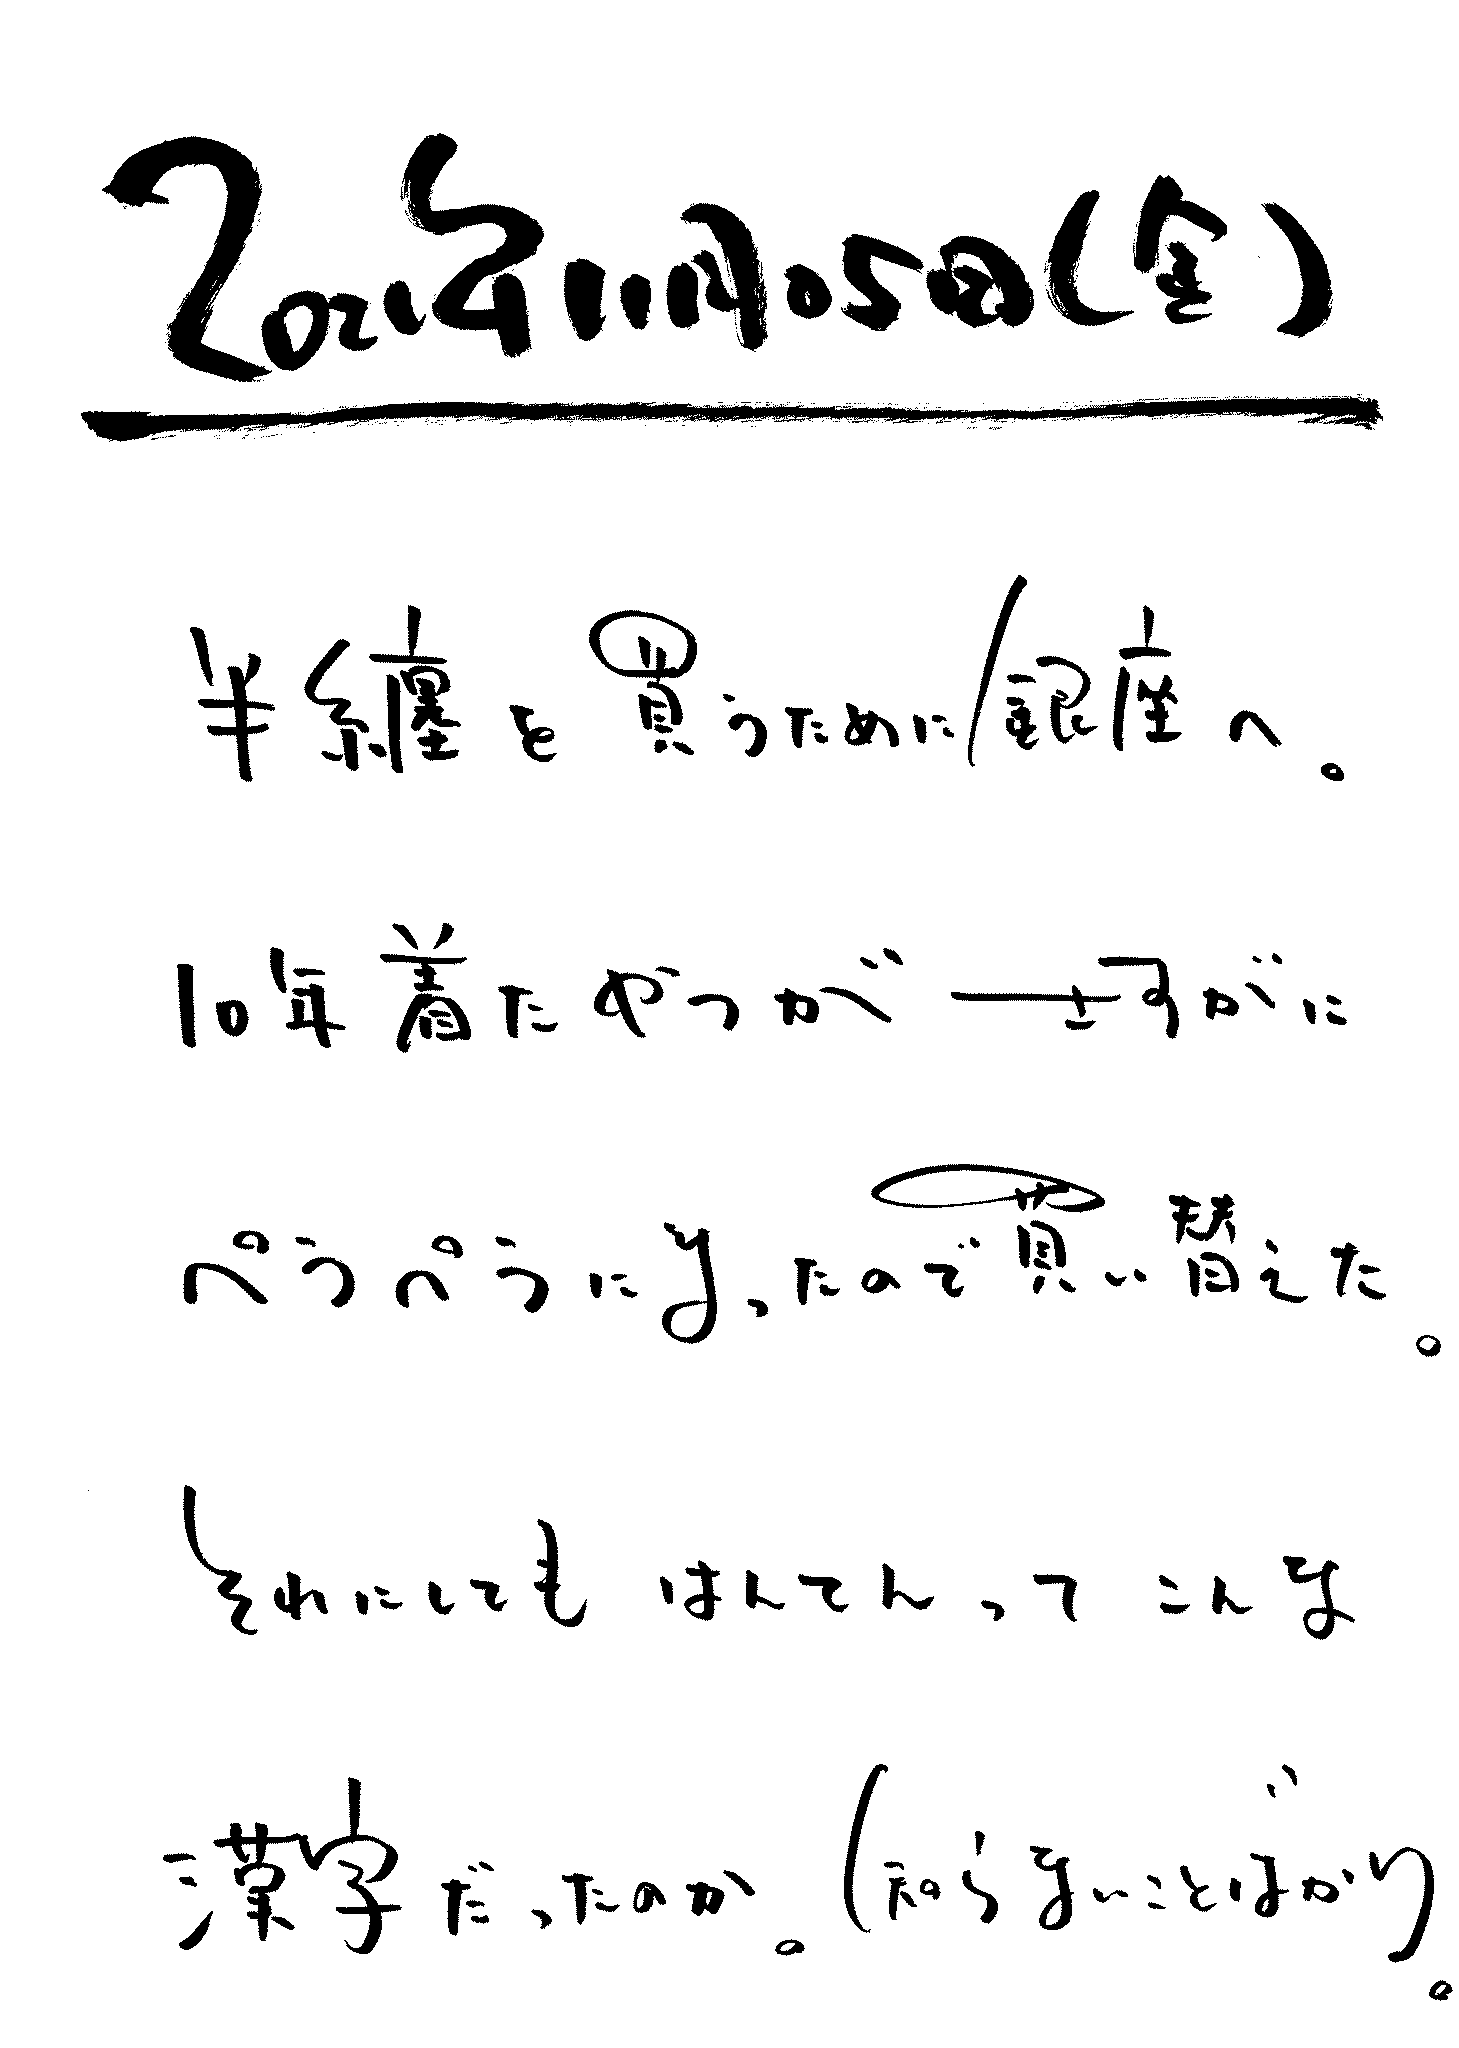 2021年11月05日(金)
半纏を買うために銀座へ。
10年着たやつがさすがに
ぺらぺらになったので買い替えた。
それにしても はんてんって こんな
漢字だったのか。知らないことばかり。